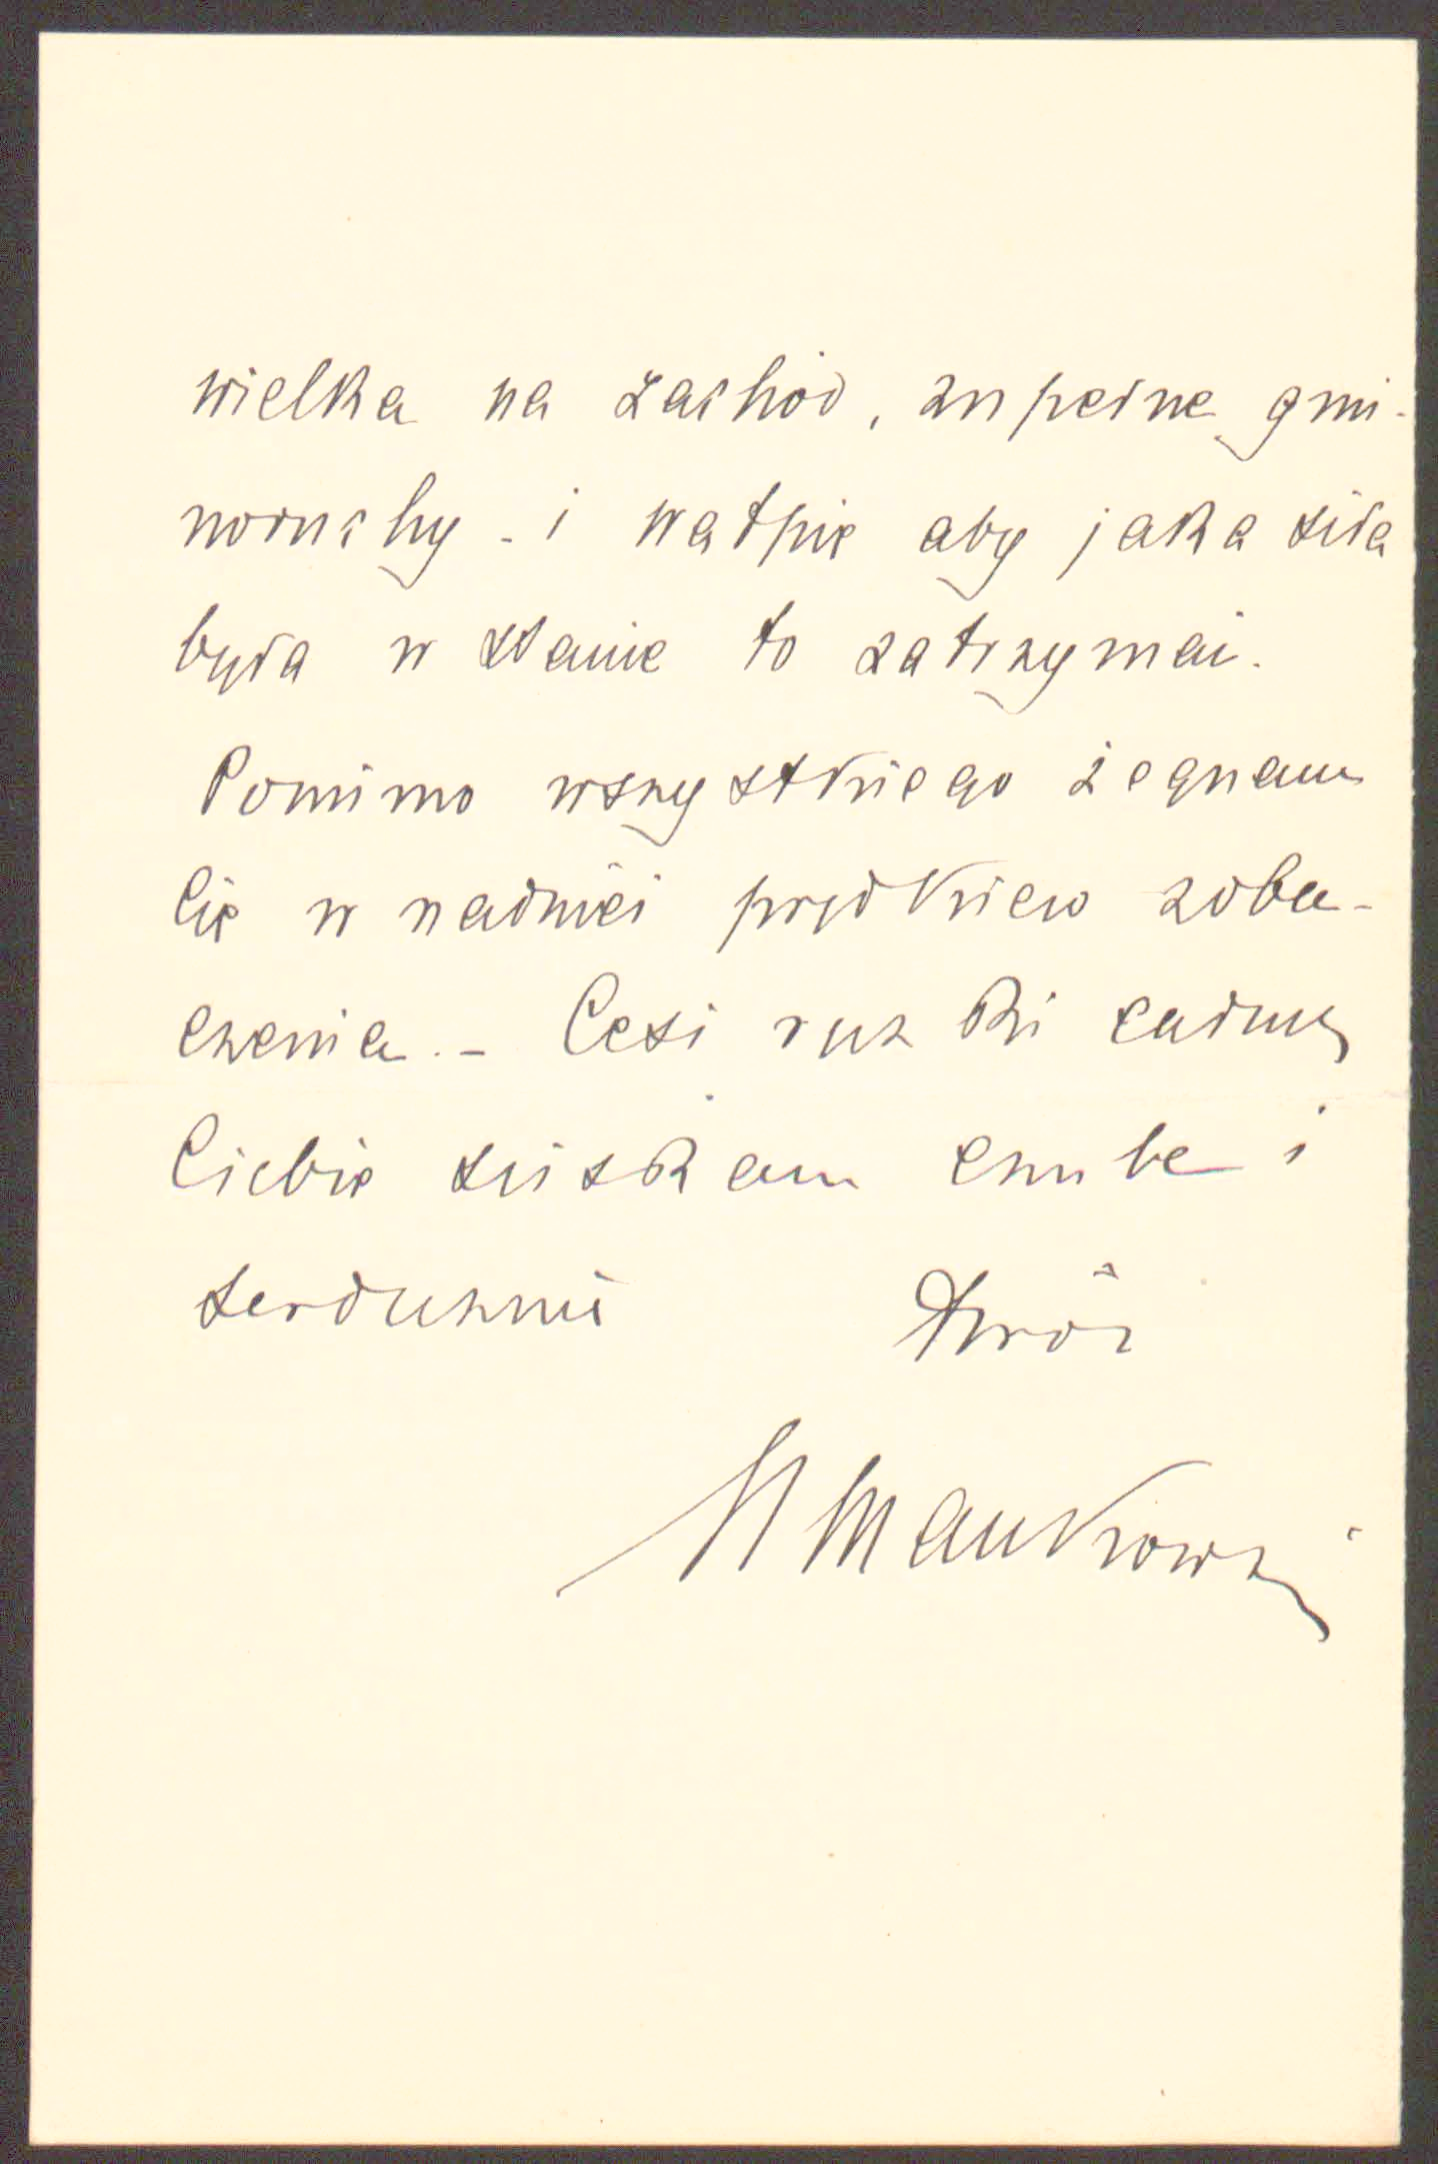 wielka na zachód, zupełne gmi-
noruchy - i wątpię aby jaka siła
była w stanie to zatrzymać.
Pomimo wszystkiego żegnam
Cię w nadziei prędkiego zoba-
czenia. - Cesi rączki całuję
Ciebie ściskam czule i
serdecznie Twój
Mańkowski